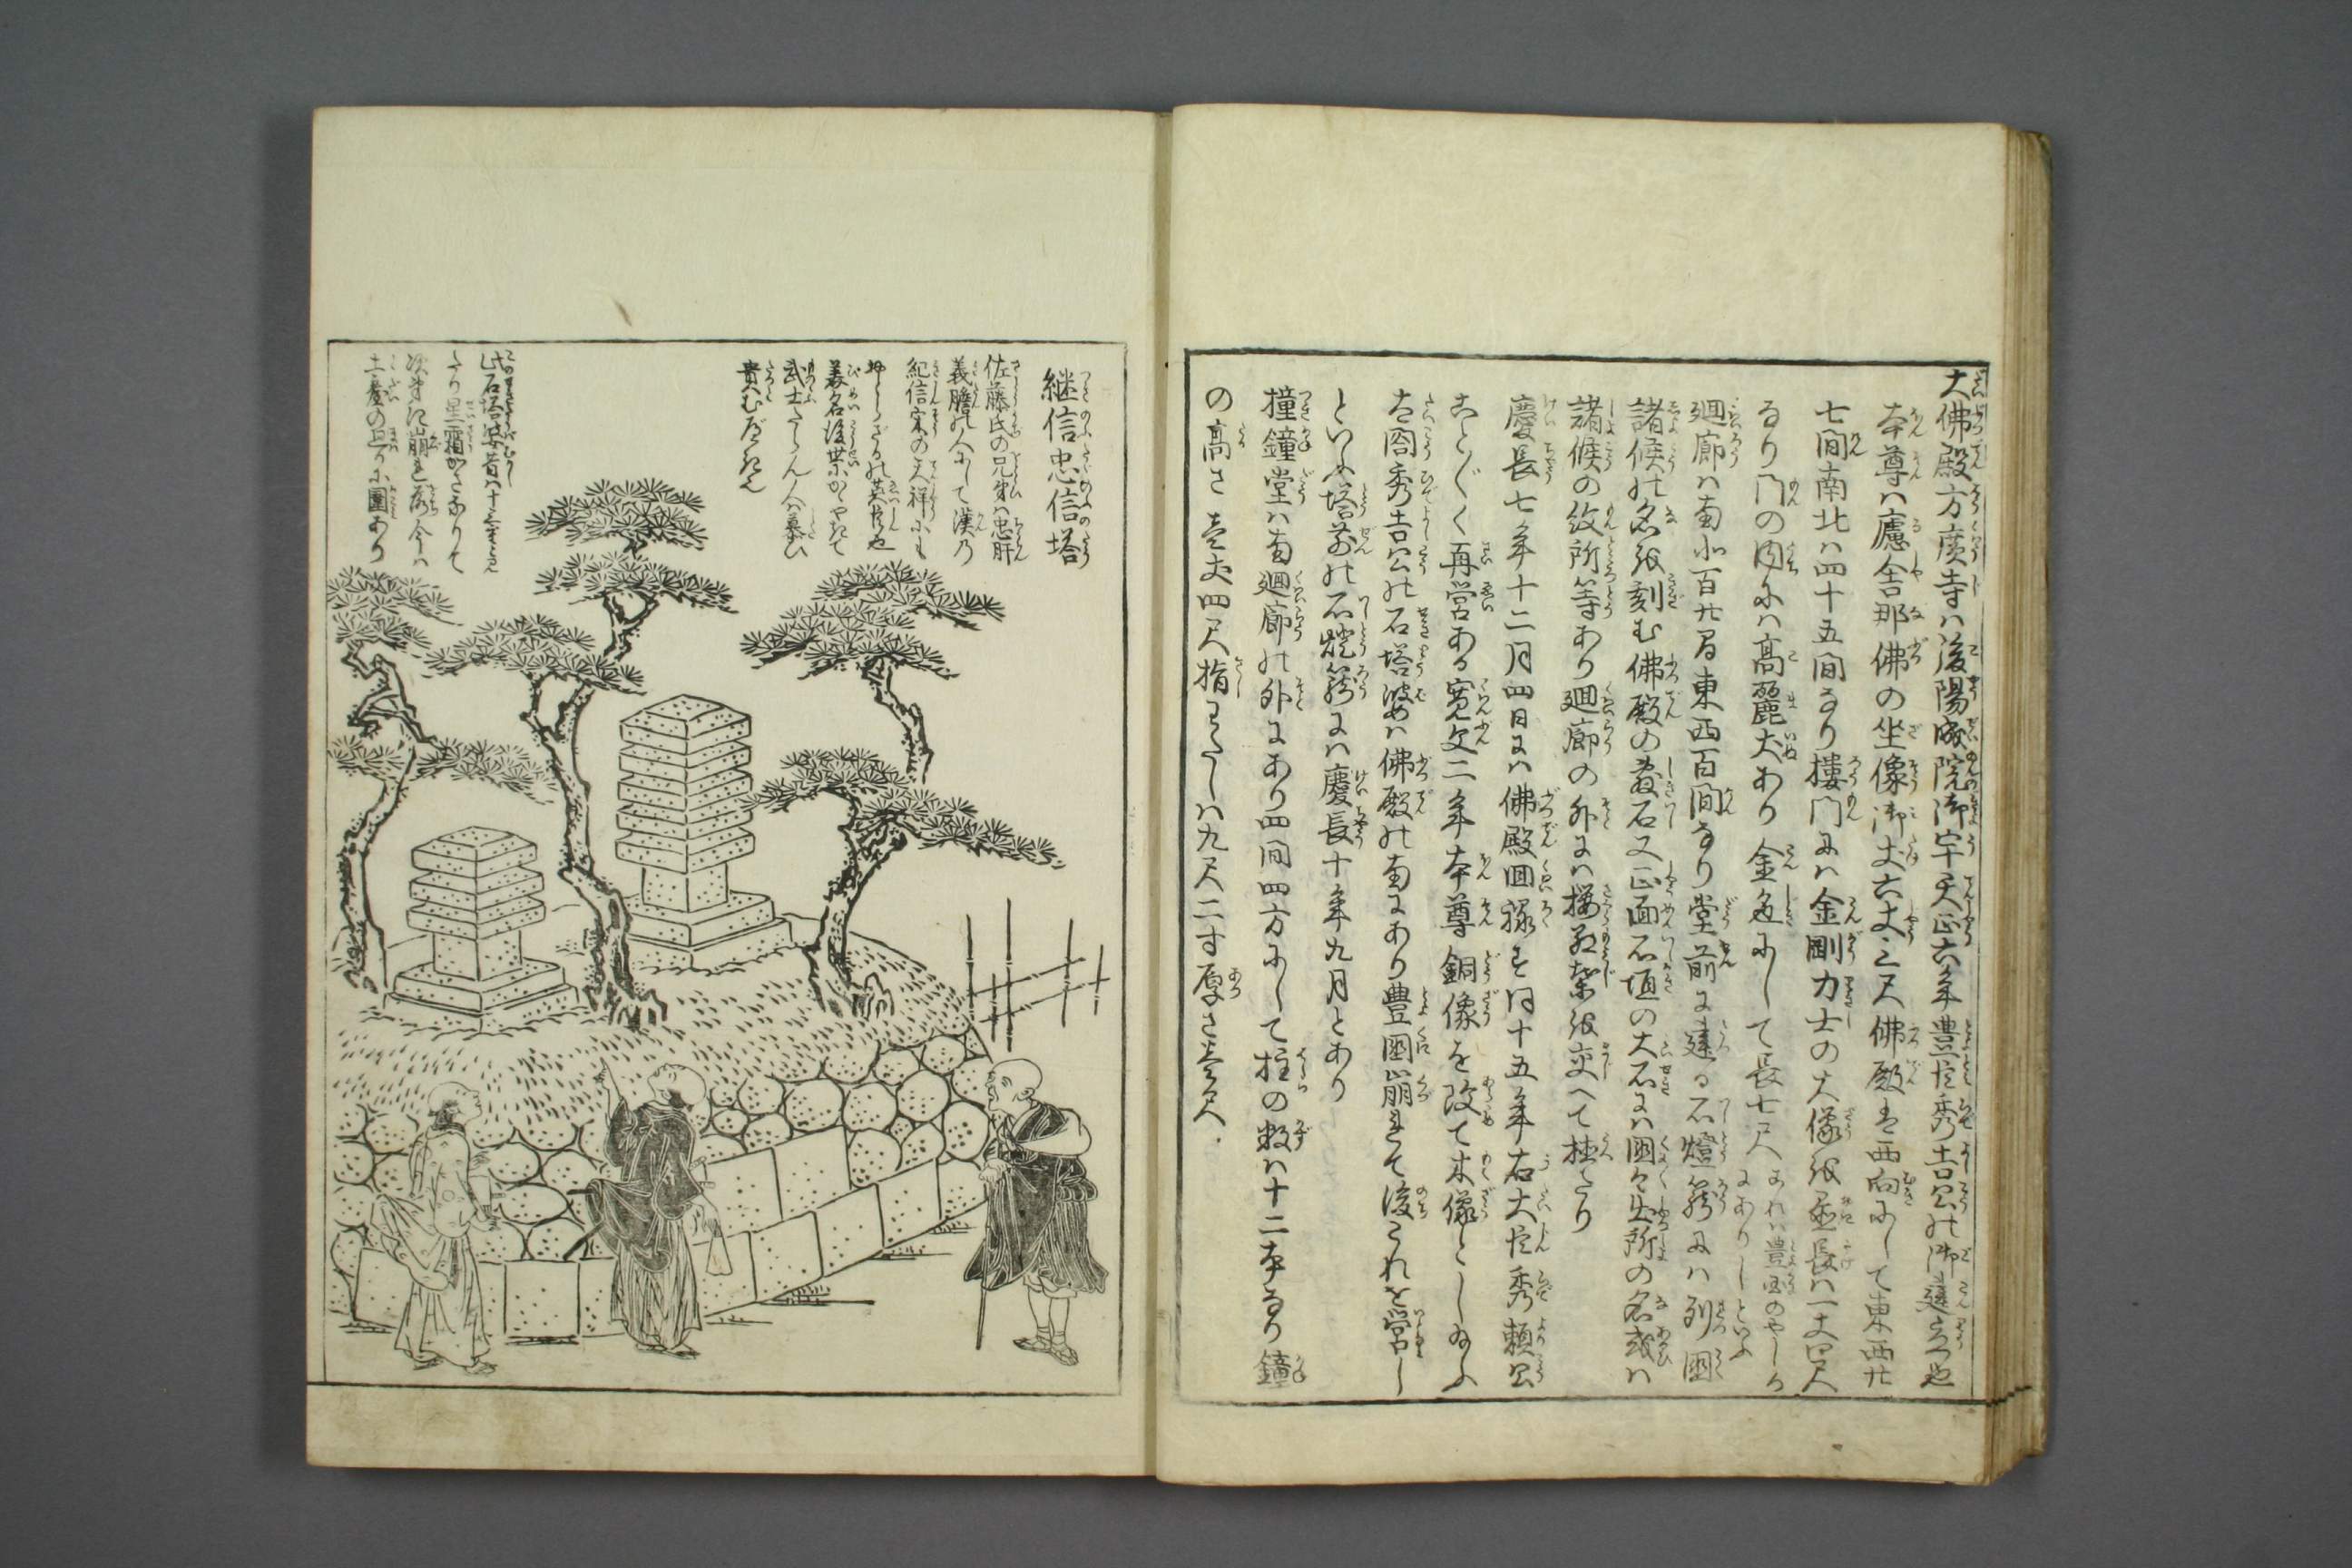 大佛殿方廣寺ハ後陽成院御宇天正六年豊臣秀吉公の御建立也
本尊ハ廬舎那佛の坐像御丈六丈三尺佛殿は西向にして東西廿
七間南北ハ四十五間なり樓門にハ金剛力士の大像を置長ハ一丈四尺
なり門の内にハ高麗犬あり金色にして長七尺
廻廊ハ南北百廿間東西百間なり堂前に建る石燈籠にハ列國
諸候の名を刻む佛殿の敷石又正面石垣の大石にハ國々出所の名或ハ
諸候の紋所等あり廻廊の外にハ櫻を交へて植たり
慶長七年十二月四日にハ佛殿回禄す同十五年右大臣秀頼公
ことごとく再営ある寛文二年本尊銅像を改て木像としめふ
太閤秀吉公の石塔婆ハ佛殿の南にあり豊國崩れて後これを営し
といふ塔前の石燈籠にハ慶長十年九月とあり
撞鐘堂ハ南廻廊の外にあり四間四方にして柱の数ハ十二本なり鐘
の高さ壱丈四尺指わたしハ九尺二寸厚さ
継信忠信塔
佐藤氏の兄弟ハ忠肝
義膽の人にして漢乃
紀信宋の天祥にも
おとらざるの英臣也
美名後世にかゞやきて
武士たらん人ハ慕ひ
貴むべきにや
此石塔婆昔ハ十三重
たり星霜かさなりて
次第に崩れ落今ハ
土臺の上に圖あり